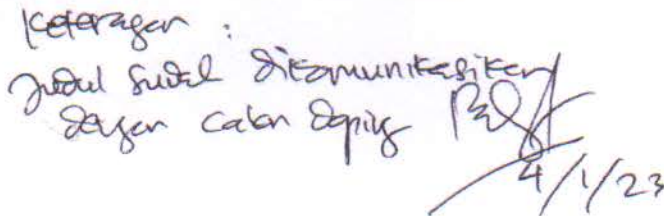 Keterangan :
Judul sudah dikomunikasikan
dengan calon doping
4/1/23